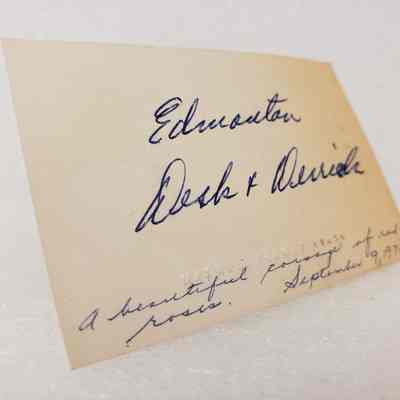 Edmonton
Desk & Derrick
A beautiful corsage of red
roses. September 9, 197